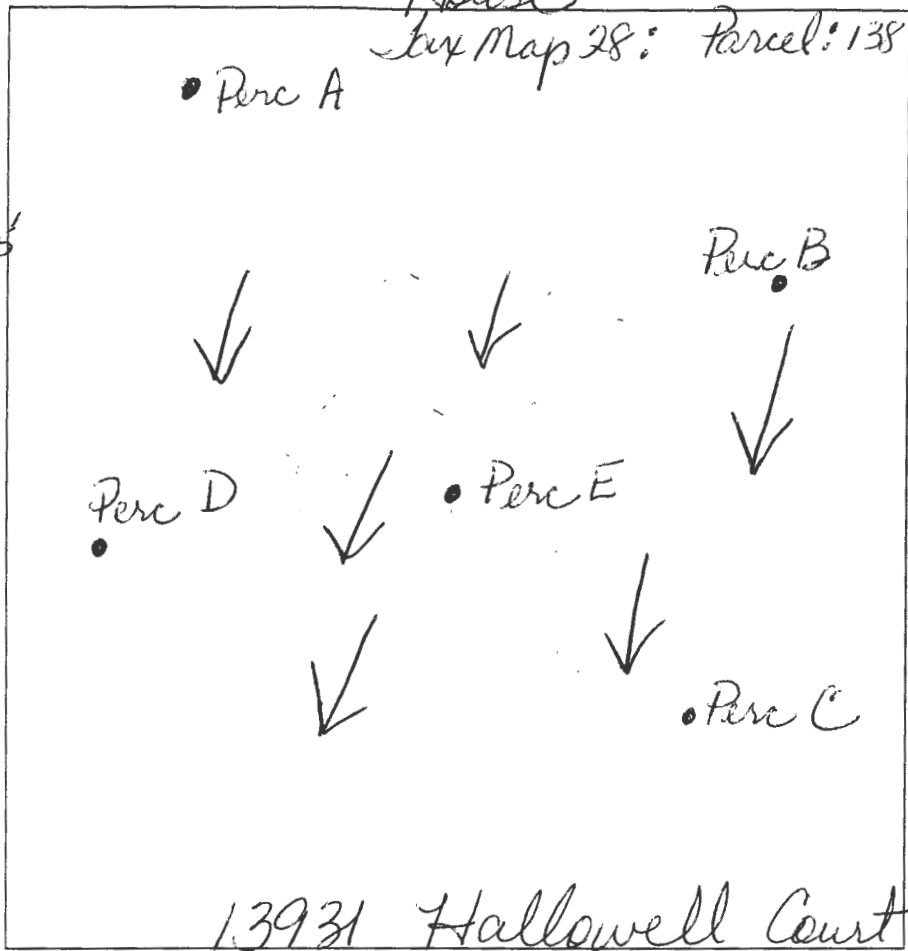 House
Tax Map 28: Parcel: 138
Perc A
Perc B
Perc D
Perc E
Perc C
13931 Hallowell Court